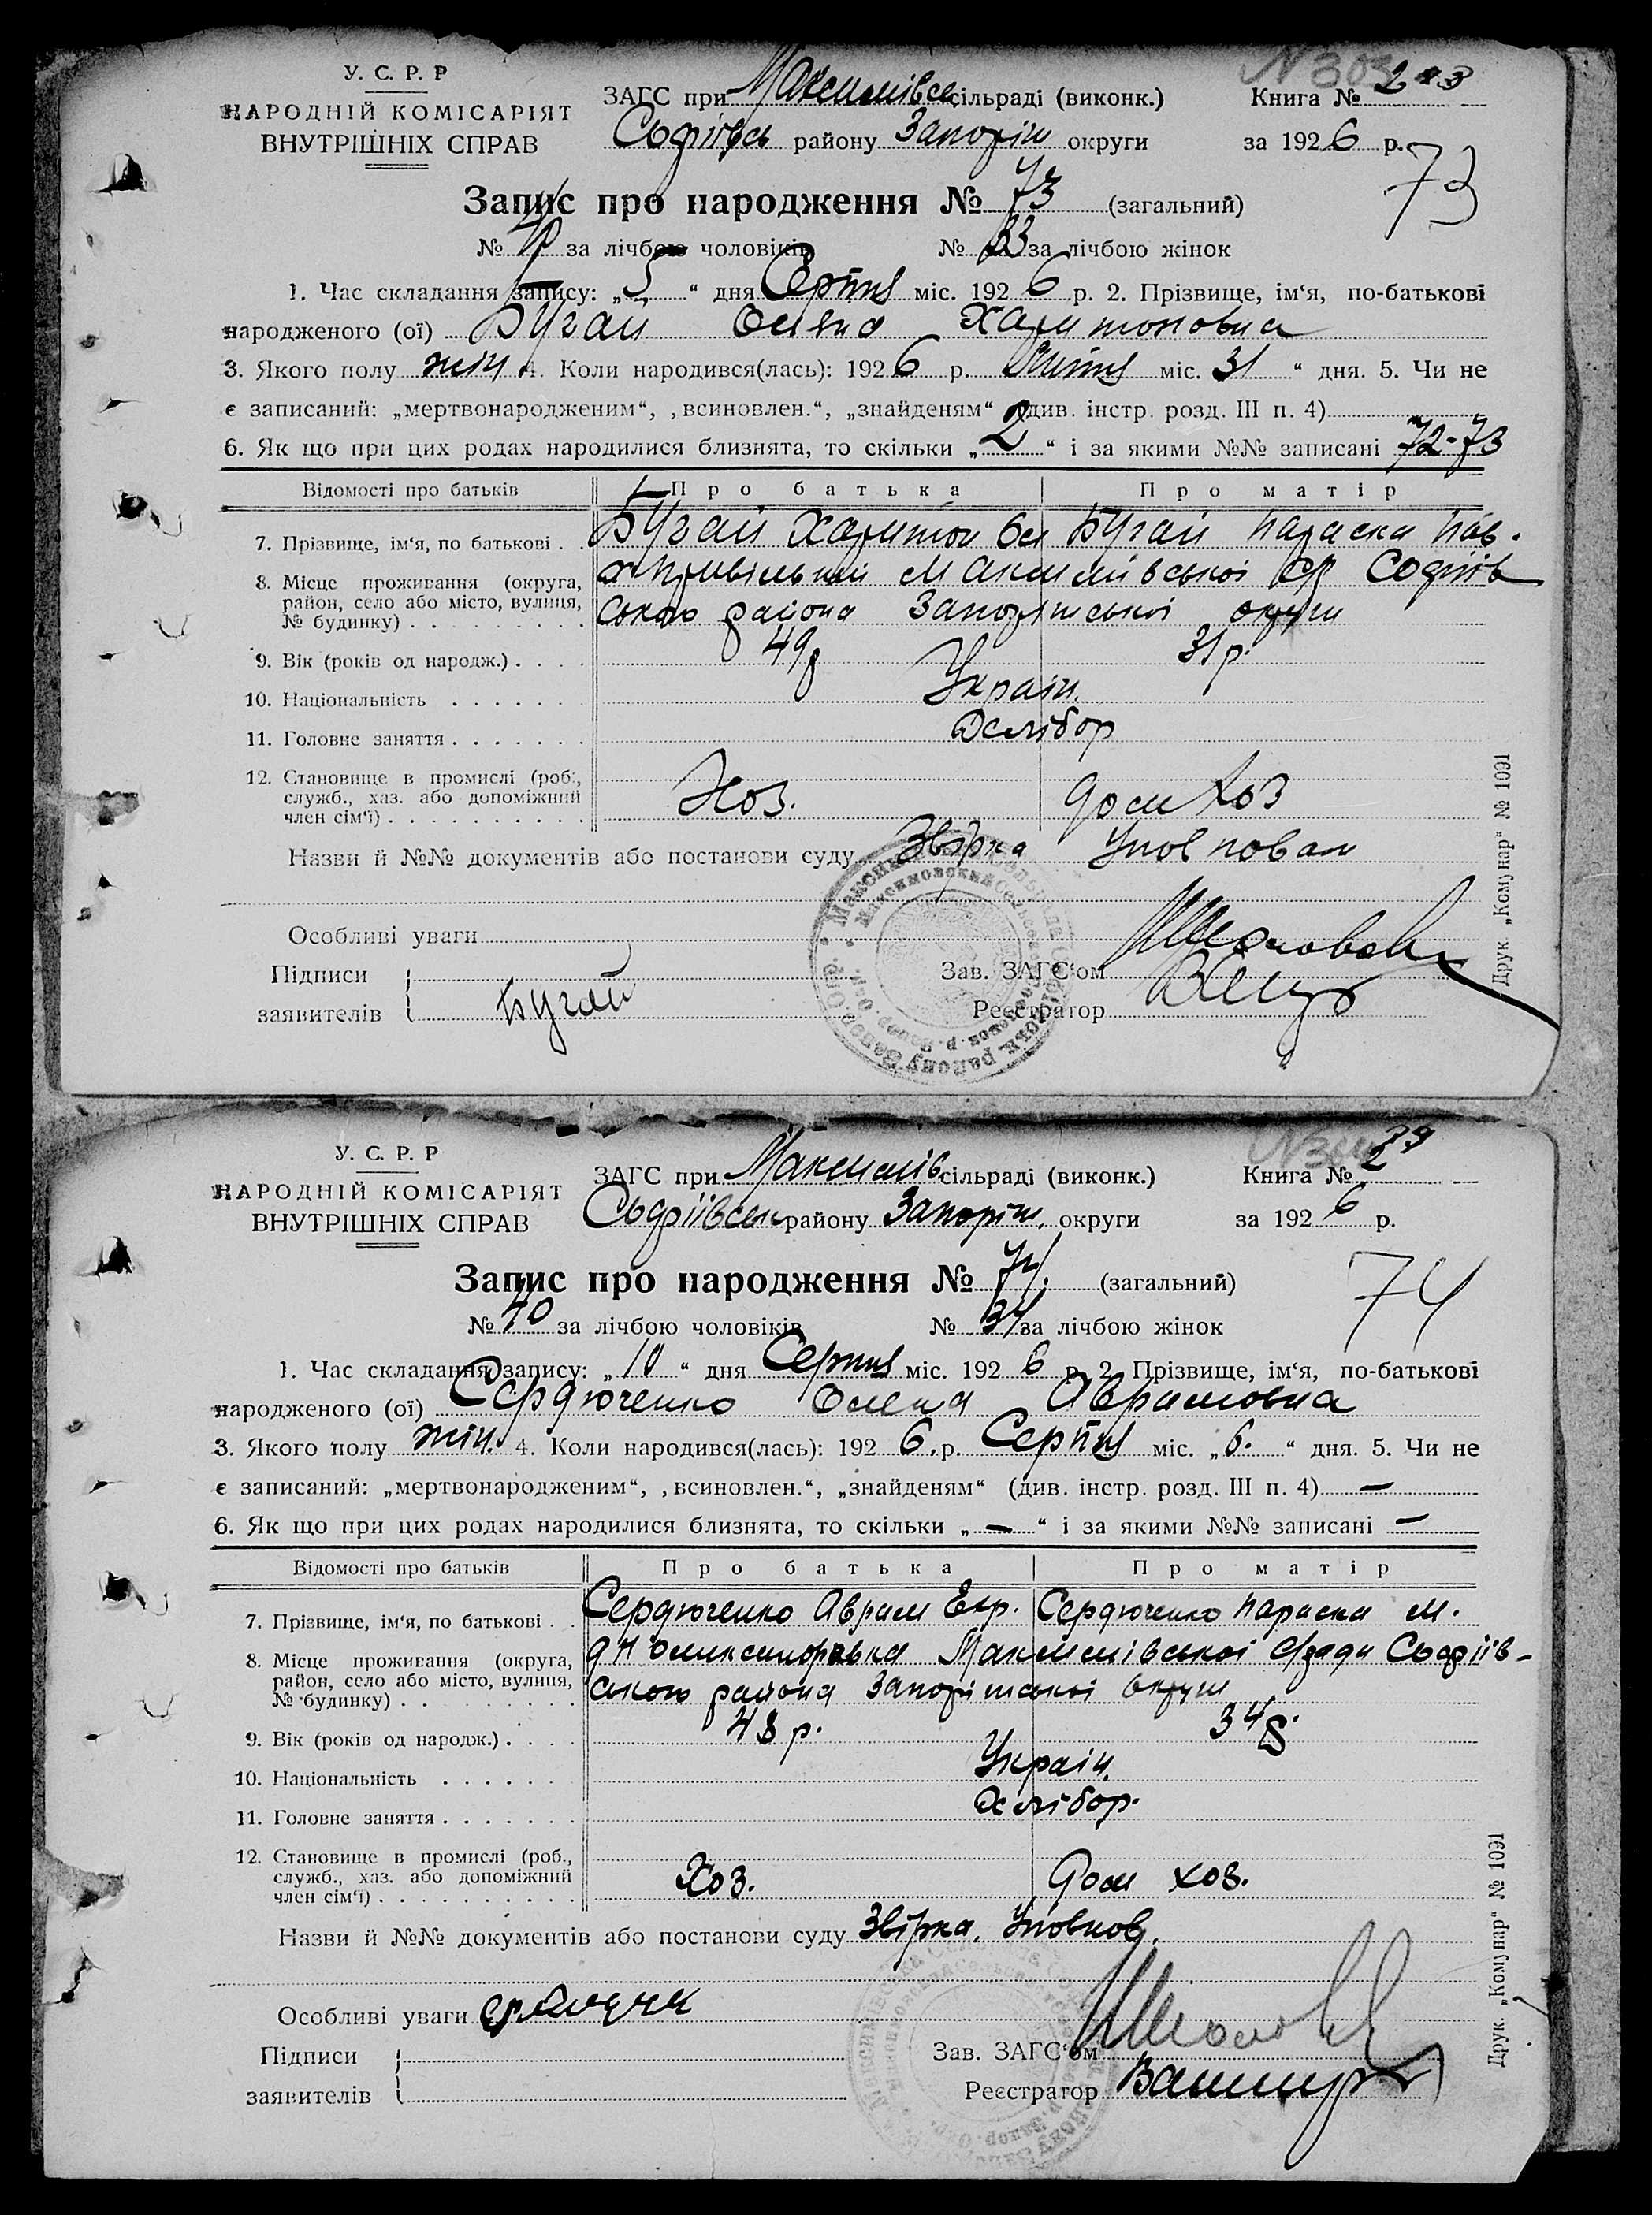 У. С. Р. Р
НАРОДНІЙ КОМІСАРІЯТ
ВНУТРІШНІХ СПРАВ
ЗАГС при Максимівськ сільраді (виконк.)
Книга № 2
Софіївськ району Запоріж округи
за 1926 р.
73
Запис про народження № 73 (загальний)
№ за лічбою чоловіків № 33 за лічбою жінок
1. Час складання запису: „5“ дня Серпня міс. 1926 р. 2. Прізвище, ім‘я, по-батькові
народженого (ої) Бугай Олена Харитоновна
3. Якого полу жін. 4. Коли народився(лась): 1926 р. Липня міс. 31“ дня. 5. Чи не
є записаний: „мертвонародженим“, ‚всиновлен.“, „знайденям“ (див. інстр. розд. III п. 4)
6. Як що при цих родах народилися близнята, то скільки „2“ і за якими №№ записані 72-73
Відомості про батьків Про батька Про матір
7. Прізвище, ім‘я, по батькові . . Бугай Харитон Бугай Параска Пав.
8. Місце проживання (округа, х Привільний Максимівської с/р Софіїв
район, село або місто, вулиця, ського района Запоріжської округи
№ будинку)
9. Вік (років од народж.) . . . . 49р 31р.
10. Національність . . . . . . . Україн.
11. Головне заняття . . . . . . . Хлібор
12. Становище в промислі (роб.,
служб., хаз. або допоміжний Хоз. дом хоз
член сім‘ї)
Назви й №№ документів або постанови суду Звірка Уповновам
Особливі уваги
Підписи
Зав. ЗАГС‘ом
заявителів Бугай
Реєстратор
Друк. „Комунар“ № 1091
У. С. Р. Р
НАРОДНІЙ КОМІСАРІЯТ
ВНУТРІШНІХ СПРАВ
ЗАГС при Максимів сільраді (виконк.)
Книга № 2
Софіївськ району Запоріж. округи
за 1926 р.
74
Запис про народження № 74. (загальний)
№ 40 за лічбою чоловіків № 34 за лічбою жінок
1. Час складання запису: „10“ дня Серпня міс. 1926 р. 2. Прізвище, ім‘я, по-батькові
народженого (ої) Сердюченко Олена Аврамовна
3. Якого полу жін. 4. Коли народився(лась): 1926. р. Серпня міс. „6.“ дня. 5. Чи не
є записаний: „мертвонародженим“, ‚всиновлен.“, „знайденям“ (див. інстр. розд. III п. 4) —
6. Як що при цих родах народилися близнята, то скільки „—“ і за якими №№ записані —
Відомості про батьків Про батька Про матір
7. Прізвище, ім‘я, по батькові . . Сердюченко Аврам Сердюченко Параска М.
8. Місце проживання (округа, Максимівської с/ради Софіїв-
район, село або місто, вулиця, ського района Запоріжської округи
№ будинку)
9. Вік (років од народж.) . . . . 48 р. 34р.
10. Національність . . . . . . Україн.
11. Головне заняття . . . . . . . Хлібор.
12. Становище в промислі (роб.,
служб., хаз. або допоміжний Хоз. Дом хоз.
член сім‘ї)
Назви й №№ документів або постанови суду Звірка. Уповнов.
Особливі уваги
Підписи
Зав. ЗАГС‘ом
заявителів
Реєстратор
Друк. „Комунар“ № 1091